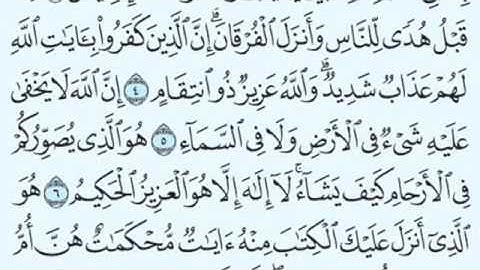 قَبْلُ هُدًى لِّلنَّاسِ وَأَنزَلَ ٱلْفُرْقَانَۗ إِنَّ ٱلَّذِينَ كَفَرُوا۟ بِـَٔايَٰتِ ٱللَّهِ
لَهُمْ عَذَابٌ شَدِيدٌۗ وَٱللَّهُ عَزِيزٌ ذُو ٱنتِقَامٍ ٤ إِنَّ ٱللَّهَ لَا يَخْفَىٰ
عَلَيْهِ شَىْءٌ فِى ٱلْأَرْضِ وَلَا فِى ٱلسَّمَآءِ ٥ هُوَ ٱلَّذِى يُصَوِّرُكُمْ
فِى ٱلْأَرْحَامِ كَيْفَ يَشَآءُۚ لَآ إِلَٰهَ إِلَّا هُوَ ٱلْعَزِيزُ ٱلْحَكِيمُ ٦ هُوَ
ٱلَّذِىٓ أَنزَلَ عَلَيْكَ ٱلْكِتَٰبَ مِنْهُ ءَايَٰتٌ مُّحْكَمَٰتٌ هُنَّ أُمُّ